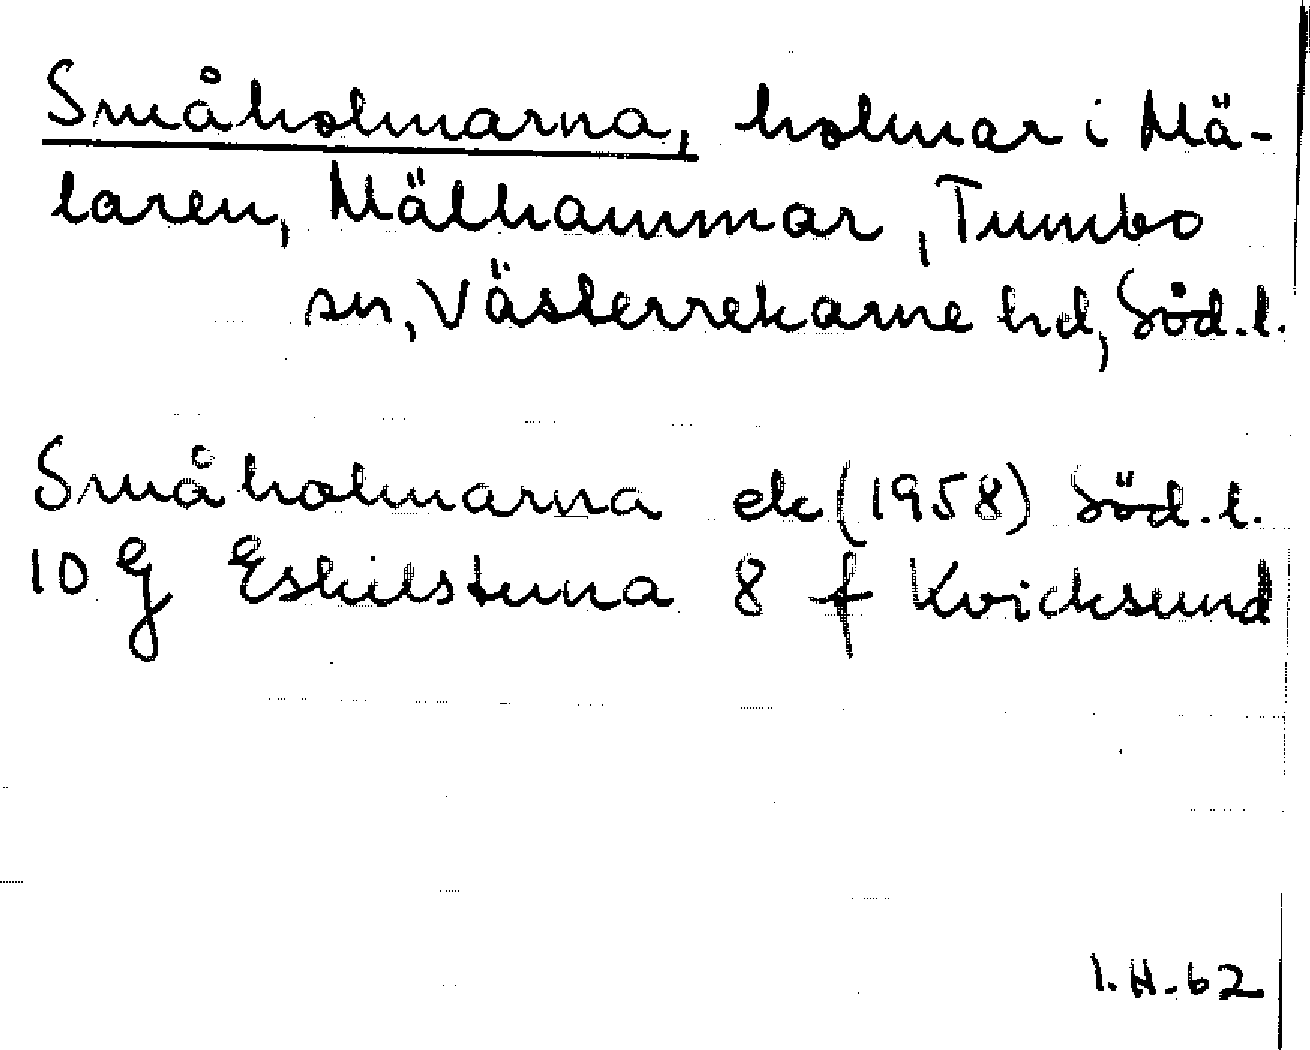 Småholmarna, holmar i Mä-
laren, Mälhammar, Tumbo
sn, Västerrekarne hd, Söd.l.
Småholmarna ek (1958) Söd.l.
10 G Eskilstuna 8 f Kvicksund
I.H.62